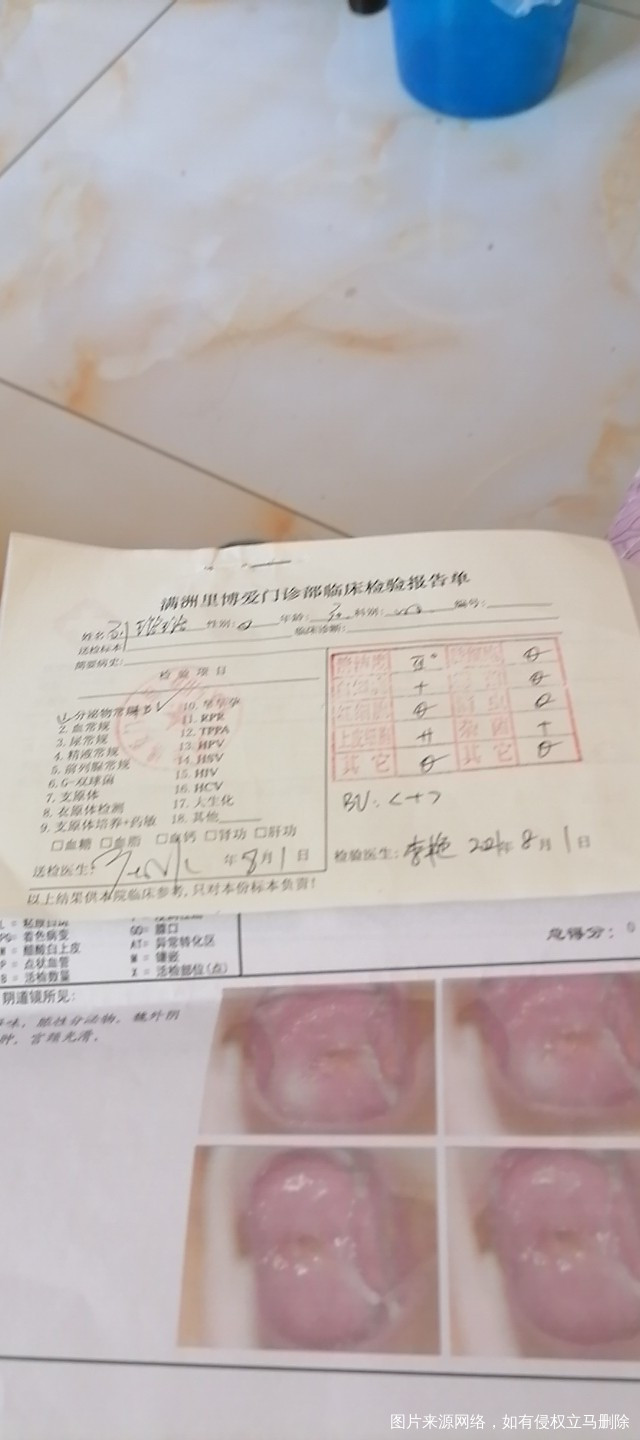 满洲里博爱门诊部临床检验报告单
姓名: 性别: 年龄: 科别: 编号:
送检标本: 临床诊断:
简要病史:
检验项目
1. 分泌物常规 BV 10.
2. 血常规 11. RPR
3. 尿常规 12. TPPA
4. 精液常规 13. HPV
5. 前列腺常规 14. HSV
6. G-双球菌 15. HIV
7. 支原体 16. HCV
8. 衣原体检测 17. 大生化
9. 支原体培养+药敏 18. 其他
□血糖 □血脂 □血钙 □肾功 □肝功
送检医生: 年8月1日
以上结果供本院临床参考,只对本份标本负责!
清洁度 III° θ
白细胞 + θ
红细胞 θ θ
上皮细胞 ++ 杂菌 +
其它 θ 其它 θ
BV: <+>
检验医生: 李艳 2021年8月1日
PO= 着色病变 GO= 腺口
W = 醋酸白上皮 AT= 异常转化区
P = 点状血管 M = 镶嵌
B = 活检数量 X = 活检部位(点)
总得分: 0
阴道镜所见:
味, 脓性分泌物, 外阴
肿, 宫颈光滑,
图片来源网络，如有侵权立马删除